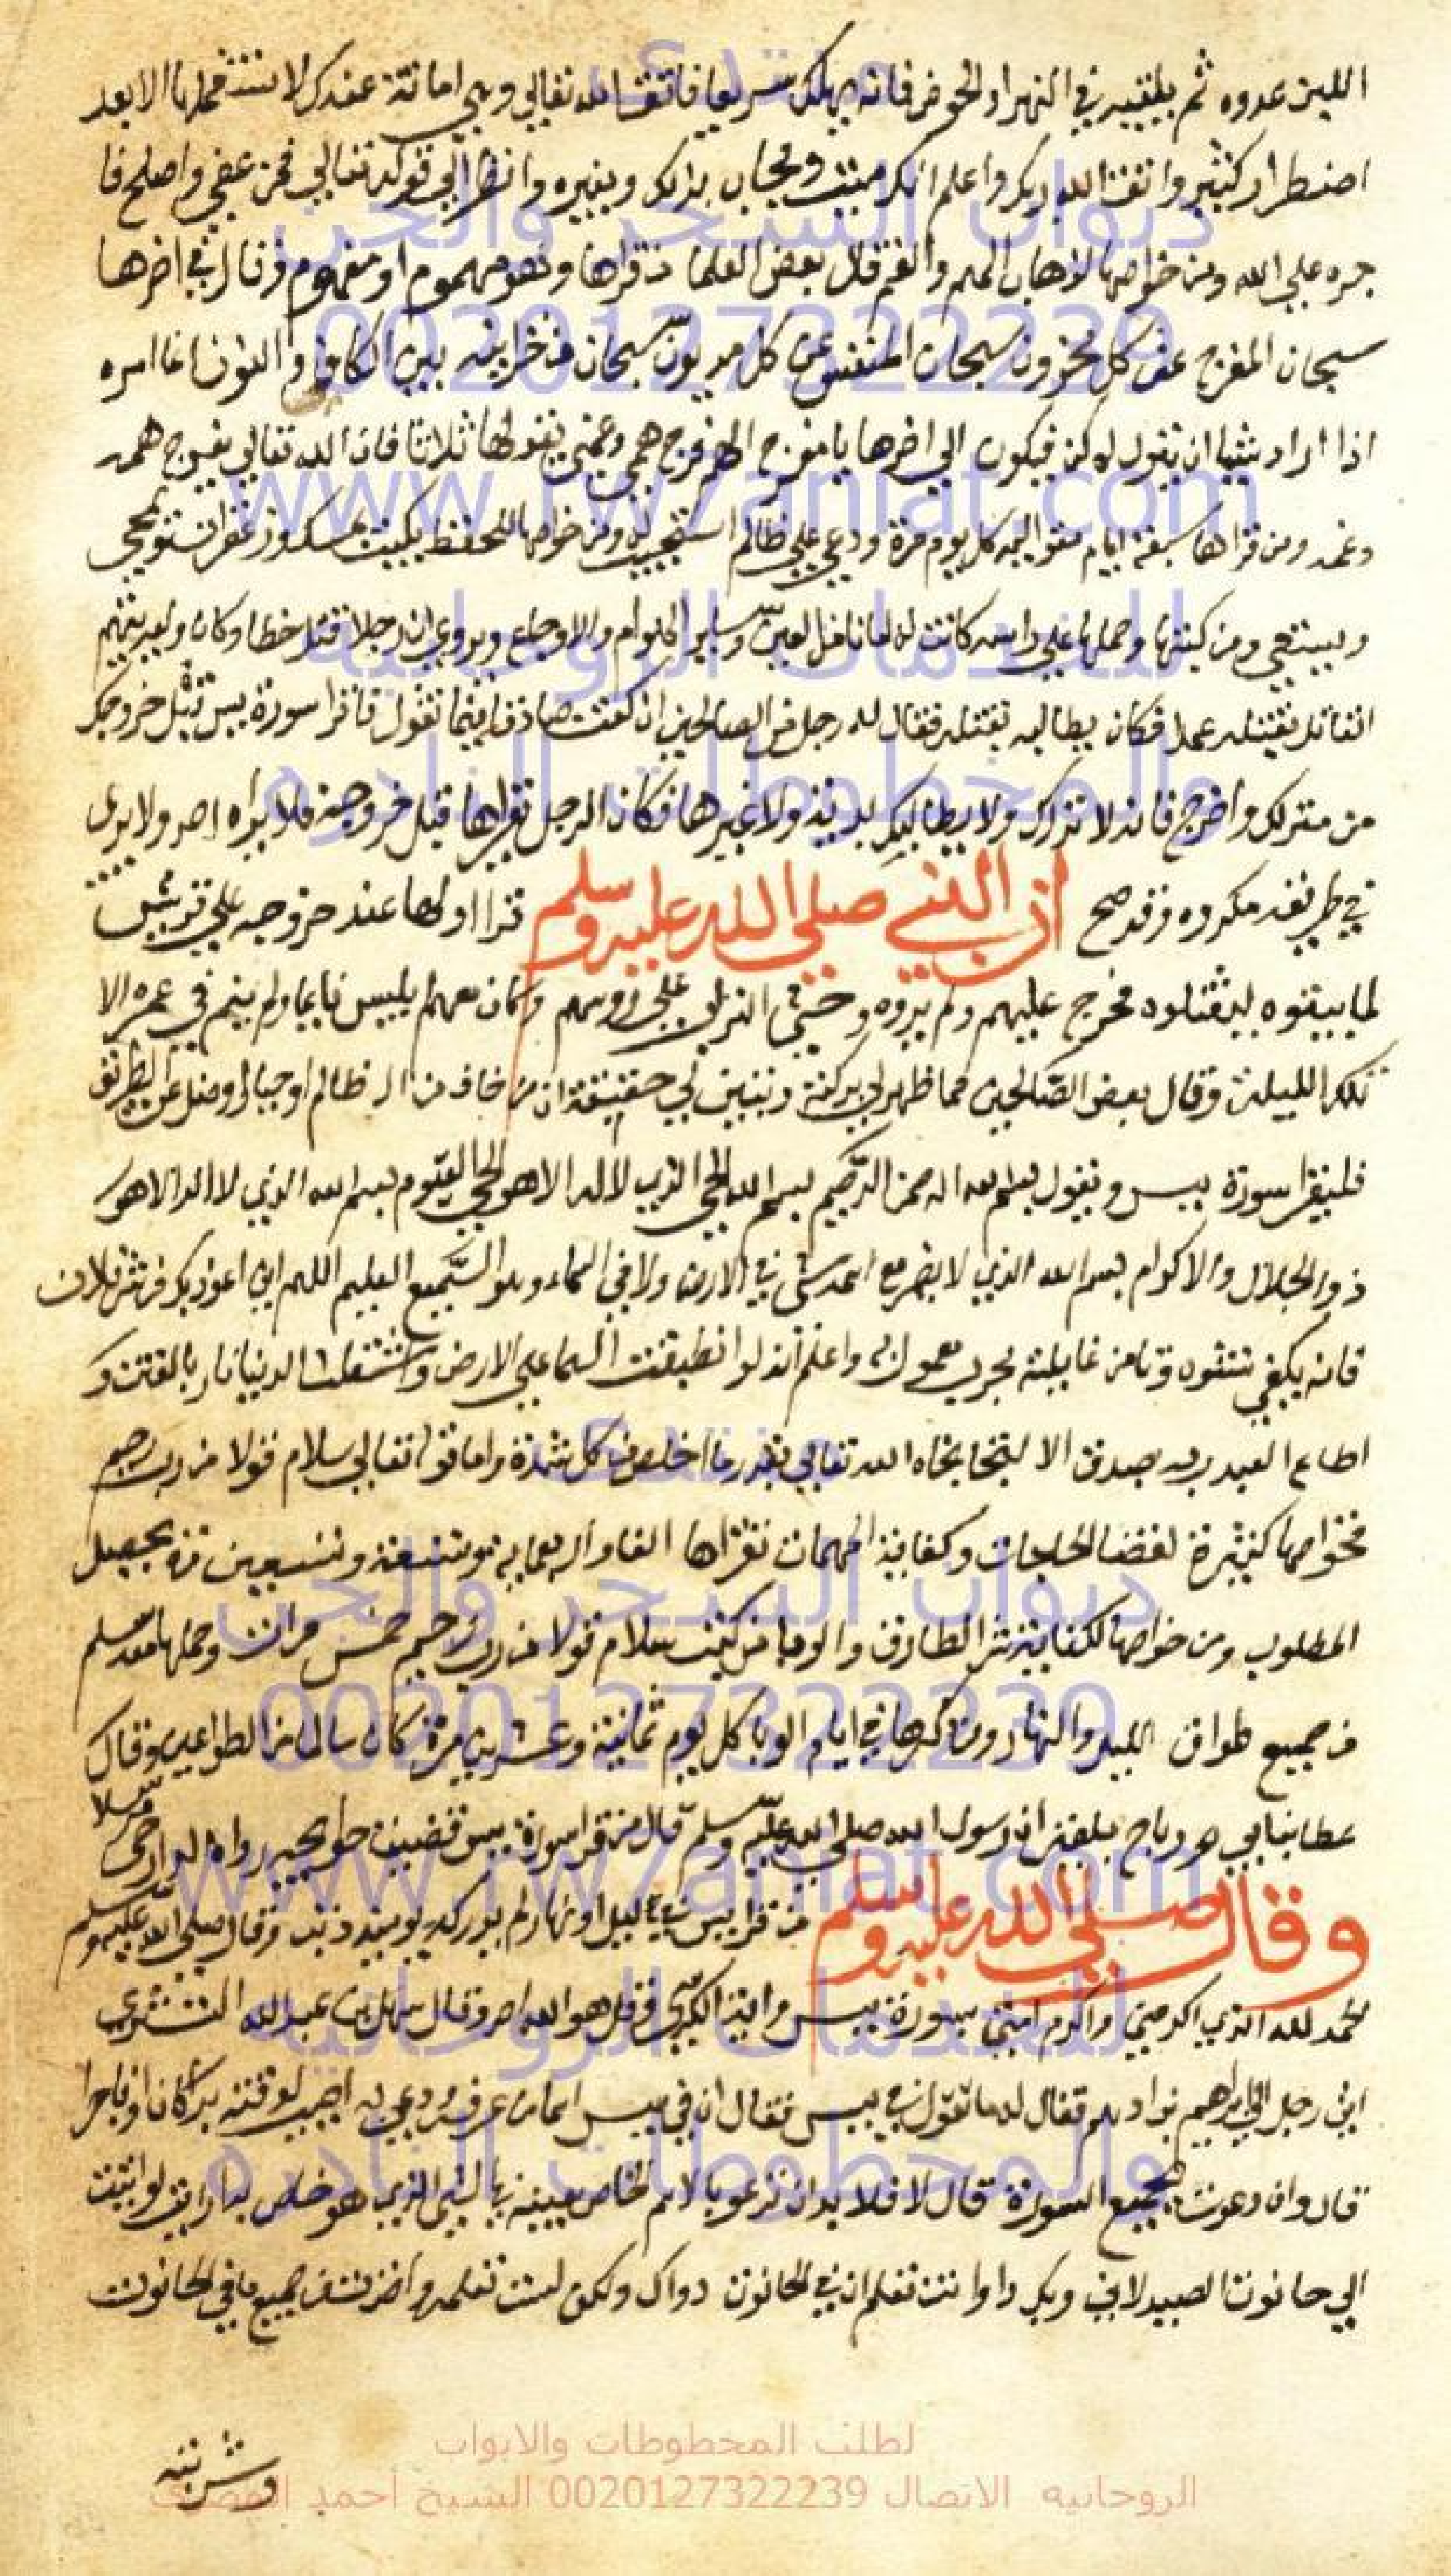 اللين عدوه ثم يلقيه في النهر او الحوض فانه يهلك سريعا فاتق الله تعالى وهي امانة عندك لا تستعملها الا بعد
اضطرار كثير واتق الله ربك واعلم انك ميت ومحاسب بذلك وبغيره وانظر الي قوله تعالي فمن عفي واصلح فا
جره علي الله ومن خواصها لاذهاب الهم والغم قال بعض العلما من قراها وهو مهموم او مغموم وقال في اخرها
سبحان المفرج عن كل محزون سبحان المنفس عن كل مديون سبحان من خزاينه بين الكاف و النون انما امره
اذا اراد شيئا ان يقول له كن فيكون الي اخرها يا مفرج الهم فرج همي وغمي يقولها ثلاثا فان الله تعالي يفرج همه
وغمه ومن قراها سبعة ايام متواليه كل يوم مرة ودعي علي ظالم استجيب له ومن خواصها للحفظ يكتب بمسك وزعفران وتمحي
ويستقي ومن كتبها وحملها علي راسه كانت له امانا من العين وساير الهوام والاوجاع ويروي ان رجلا قتل خطا وكان ولي يتهم
القاتل بقتله عمدا فكان يطالبه بقتله فقال له رجل من الصالحين ان كنت صادقا فيما تقول فاقرا سورة يس قبل خروجك
من منزلك واخرج فانه لا تراك ولا يطالبك بدية ولا غيرها فكان الرجل يقراها قبل خروجه فلا يراه احد ولا يري
في طريقه مكروه وقد صح ان النبي صلي الله عليه وسلم قرا اولها عند خروجه علي قريش
لما بيتوه ليقتلوه فخرج عليهم ولم يروه وحثي التراب علي رؤسهم وكان معهم ابليس نايما ولم ينم في عمره الا
تلك الليلة وقال بعض الصالحين مما ظهر لي بركته وتبين لي حقيقة ان من خاف من ظالم او جبار او ضل عن الطريق
فليقرا سورة يس ويقول بسم الله الرحمن الرحيم بسم الله الحي الذي لا اله الا هو الحي القيوم بسم الله الذي لا اله الا هو
ذو الجلال والاكرام بسم الله الذي لا يضر مع اسمه شي في الارض ولا في السماء وهو السميع العليم اللهم اني اعوذ بك من شر فلان
فانه يكفي شره وتامن غايلته مجرب معمول واعلم انه لو انطبقت السما علي الارض واشتعلت الدنيا نار بالفتن و
اطاع العبد ربه بصدق الالتجا نجاه الله تعالي بقدر ما اخلص من كل شدة واما قوله تعالي سلام قولا من رب رحيم
فخواصها كثيرة لقضا الحاجات وكفاية المهمات تقراها الفا واربعمايه وتسعة وتسعين مره يحصل
المطلوب ومن خواصها لكفاية شر الطارق والوبا من كتب سلام قولا من رب رحيم خمس مرات وحملها معه سلم
من جميع طوارق الليل والنهار ومن ذكرها في ايام الوبا كل يوم ثمانية وعشرين مرة كان سالما من الطواعين وقال
عطا بن ابي رباح بلغني ان رسول الله صلي الله عليه وسلم قال من قرا سورة يس قضيت حوايجه رواه الدارمي مرسلا
وقال صلي الله عليه وسلم من قرا يس في ليل او نهار لم يدركه يوميذ ذنب وقال صلي الله عليه وسلم
الحمد لله الذي اكرمني واكرم امتي بسورة يس واية الكرسي وقل هو الله احد وقال سهل بن عبد الله التستري
اتي رجل الي ابراهيم بن ادهم فقال له ما تقول في يس فقال ان في يس اسما من عرفه ودعي به اجيب لوقته برا كان او فاجرا
قال وان دعوت بجميع السورة قال لا فلا بد ان تدعو بالاسم الخاص بعينه بالشي الذي هو خاص له ارايت لو اتيت
الي حانوت الصيدلاني وبك دا وانت تعلم ان في الحانوت دواك ولكن لست تعلمه واخذت من جميع ما في الحانوت
وشربته
منتدى
ديوان السحر والجن
0020127322239
www.rw7aniat.com
للخدمات الروحانية
والمخطوطات النادره
منتدى
ديوان السحر والجن
0020127322239
www.rw7aniat.com
للخدمات الروحانية
والمخطوطات النادره
لطلب المخطوطات والابواب
الروحانيه الاتصال 0020127322239 الشيخ احمد